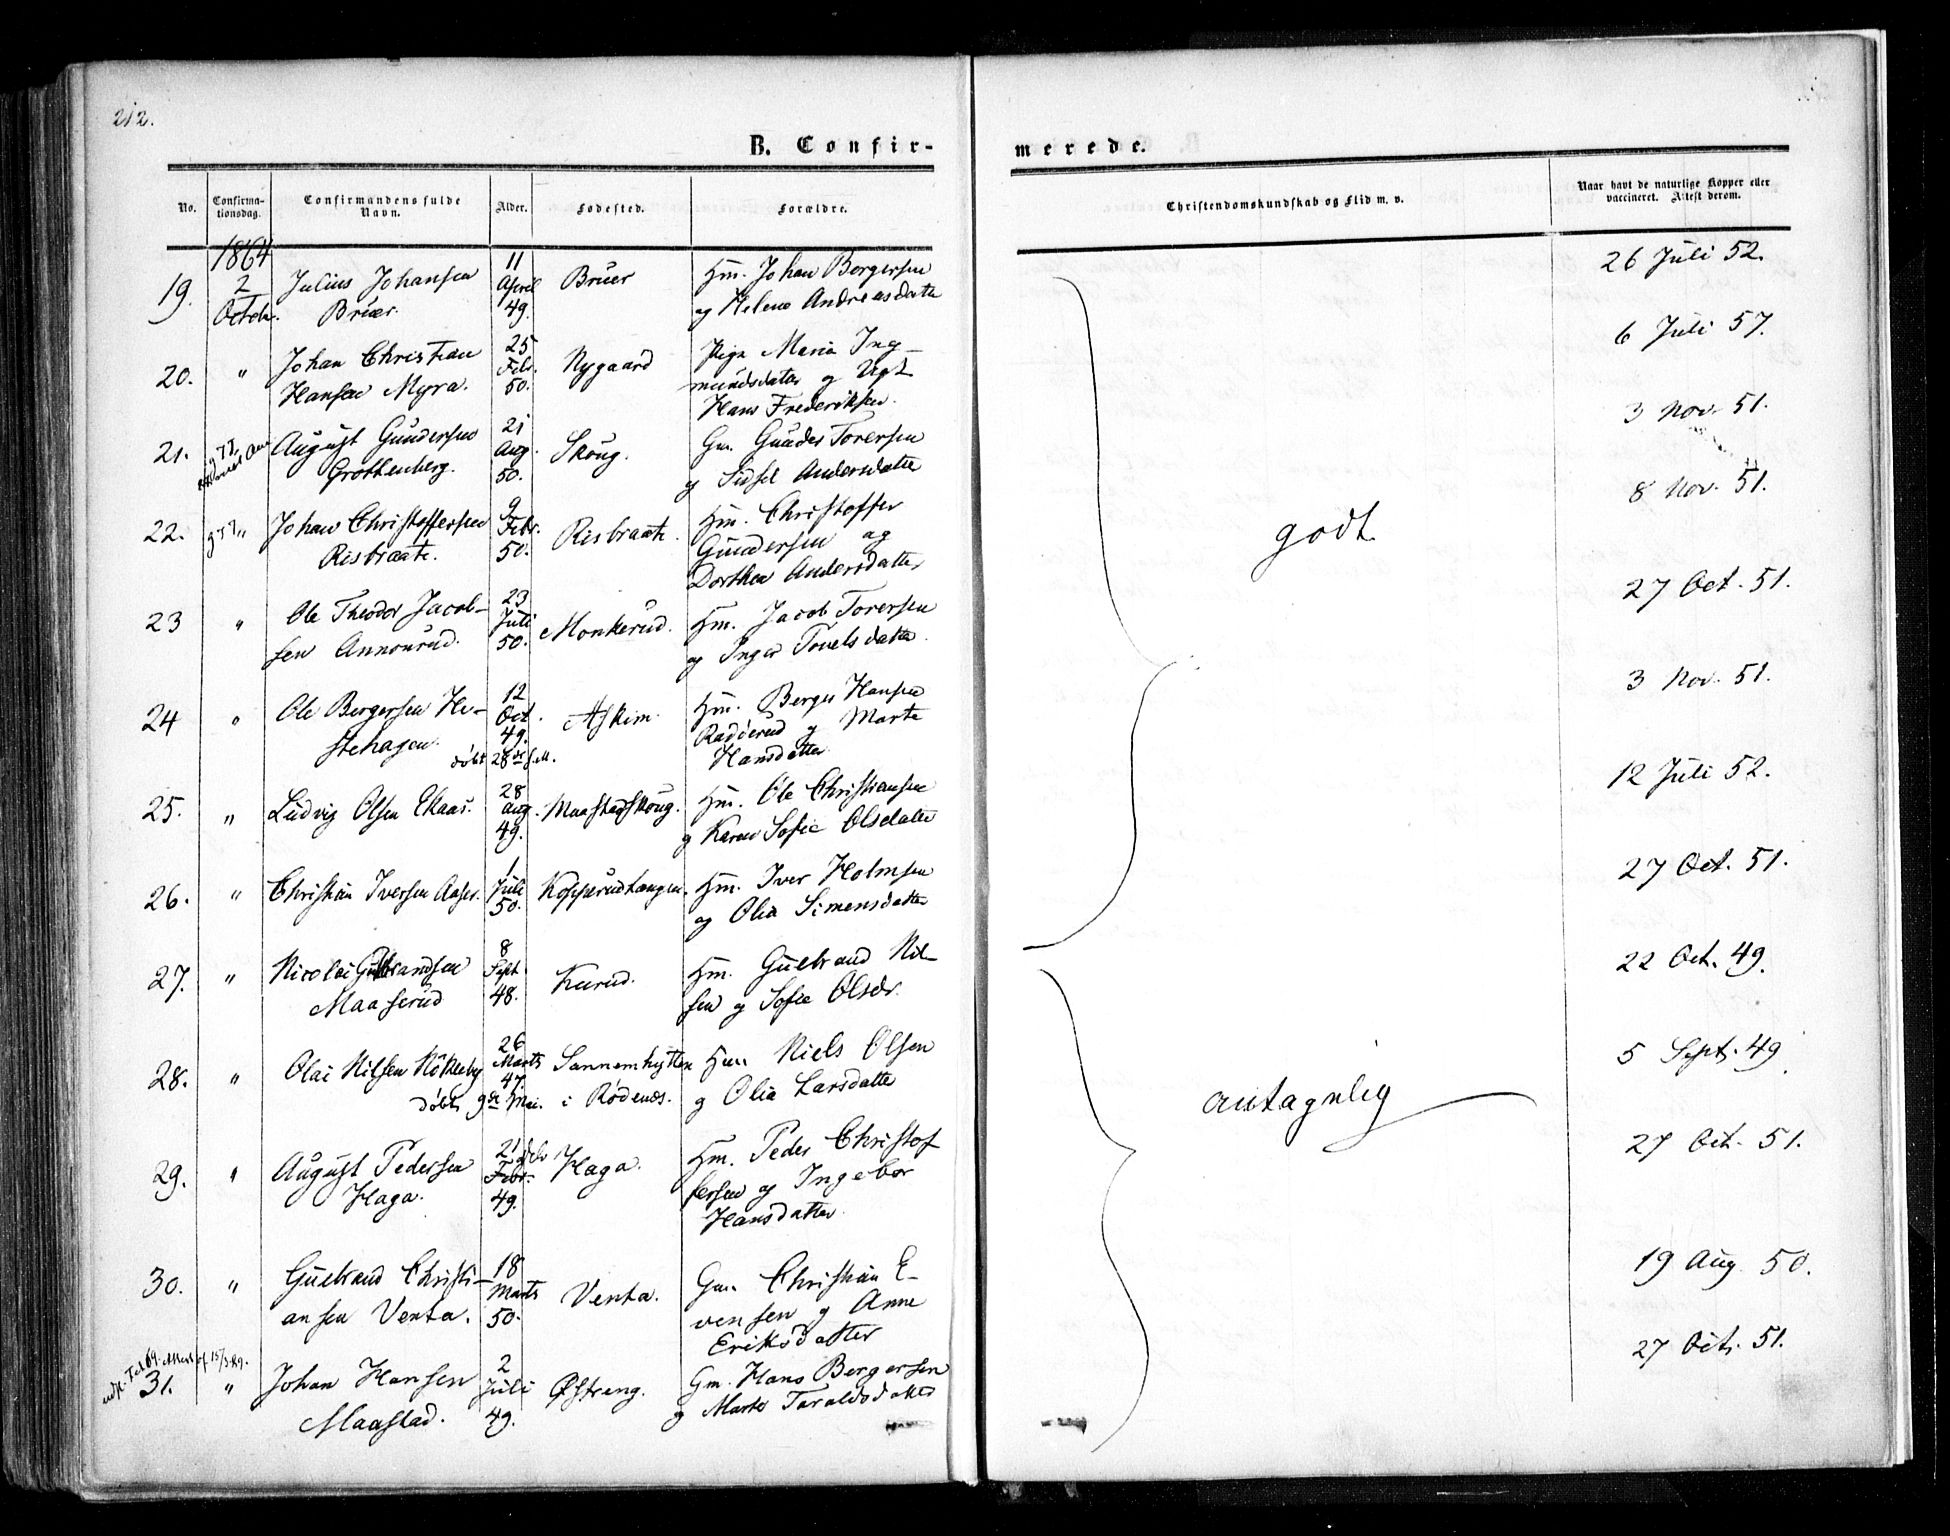 212.
B. Confir-
merede.
No.
Confirma-
tionsdag.
Confirmandens fulde
Navn.
Alder.
Fødested.
Forældre.
Christendomskundskab og Flid m. v.
Naar havt de naturlige Kopper eller
vaccineret. Attest derom.
1864
19. 2 Julius Johansen 11 April Bruer Hm. Johan Borgersen 26 Juli 52.
Octob. Bruer. 49. og Helene Andreasdatter
20. " Johan Christian 25 Febr. Nygaard Pige Maria Ing- 6 Juli 57.
Hansen Myra. 50. mundsdatter og Ugt.
Hans Frederiksen.
21. August Gundersen 21 Aug. Skoug. Gm. Gunder Torersen 3 Nov. 51.
Grothenberg. 50. og Sidsel Andersdatter
22. " Johan Christoffersen 9 Febr. Risbraate. Hm. Christoffer 8 Nov. 51.
Risbraate. 50. Gundersen og
Dorthea Andersdatter
godt.
23 " Ole Theodor Jacob- 23 Juli Monkerud. Hm. Jacob Torersen 27 Oct. 51.
sen Annonrud. 50. og Inger Povelsdatter.
24 " Ole Bergersen He- 12 Oct. Askim. Hm. Berger Hansen 3 Nov. 51.
stehagen. 49. og Marte
døbt 28de s. M. Hansdatter
25. " Ludvig Olsen Ekaas. 28 Aug. Maastadskoug. Hm. Ole Christiansen 12 Juli 52.
49. og Karen Sofie Olsdatter
26. " Christian Iversen Aaser. 1 Juli Kopperudtangen. Hm. Iver Holmsen 27 Oct. 51.
50. og Olia Simensdatter
27. " Nicolai Gulbrandsen 8 Sept. Kurud. Hm. Gulbrand Nil- 22 Oct. 49.
Maaserud 48. sen og Sofie Olsdr.
28. " Olai Nilsen Kökkeby 26 Marts Sannemhytten Hm. Niels Olsen 5 Sept. 49
døbt 9de Mai. 47. i Rødenes. og Olia Larsdatter
antagelig
29. " August Pedersen 21 Febr. Haga. Hm. Peder Christof 27 Oct. 51.
Haga. 49. fersen og Ingebor
Hansdatter
30. " Gulbrand Christi- 18 Marts Venta. Gm. Christian E- 19 Aug. 50.
ansen Venta. 50. vensen og Anne
Eriksdatter
31. " Johan Hansen 2 Juli Østreng. Gm. Hans Bergersen 27 Oct. 51.
Maastad. 49. og Marte Taraldsdatter